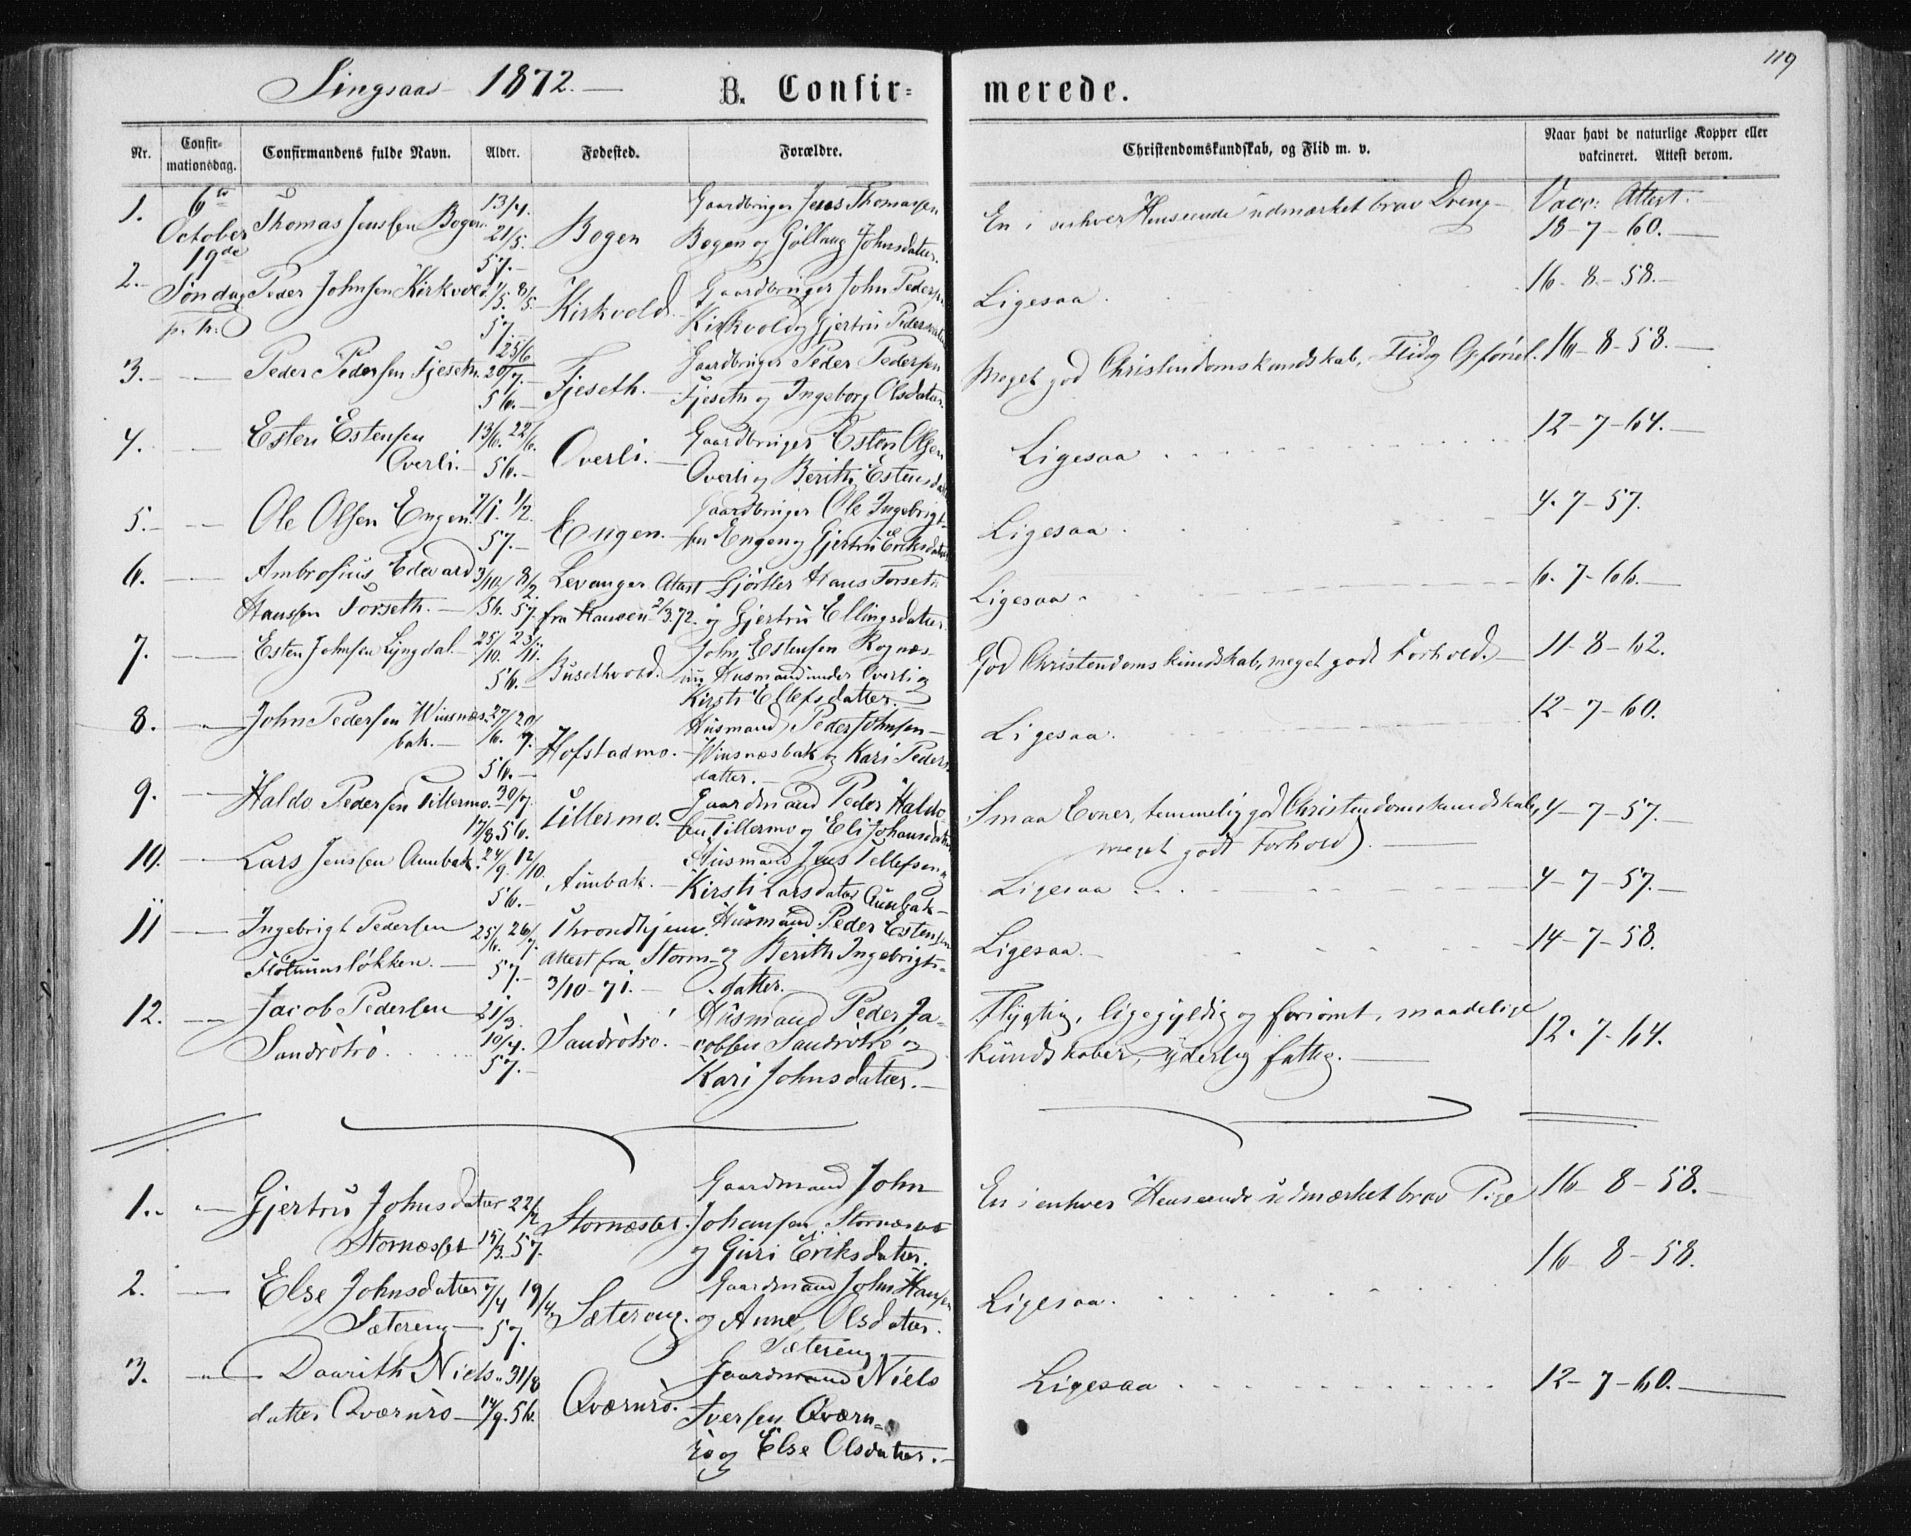 119
Singsaas 1872.
B. Confirmerede.
Nr.
Confirmationsdag.
Confirmandens fulde Navn.
Alder.
Fødested.
Forældre.
Christendomskundskab, og Flid m. v.
Naar havt de naturlige Kopper eller
vakcineret. Attest derom.
1. 6te October 19de Thomas Jenssen Bogen 13/4. 21/5. 57. Bogen Gaardbruger Jens Thomassen
Bogen og Gøllaug Johnsdatter.
En i enhver Henseende udmærket brav Dreng Vacc: Attest:
18-7-60.
2. Søndag p. Tr: Peder Johnsen Kirkvold 8/5. 57. Kirkvold. Gaardbruger John Pedersen
Kirkvold og Gjertru Pedersdatter
Ligesaa 16-8-58.
3. Peder Pedersen Fjeseth 25/6 20/7. 56. Fjeseth. Gaardbruger Peder Pedersen
Fjeseth og Ingeborg Olsdatter.
Meget god Christendomskundskab, Flid og Opførsel. 16-8-58.
4. Esten Estensen
Overli. 13/6. 22/6. 56. Overli. Gaardbruger Esten Olsen
Overli og Berith Estensdatter
Ligesaa 12-7-64.
5. Ole Olsen Engen 7/1. 1/2. 57. Engen. Gaardbruger Ole Ingebrigt-
sen Engen og Gjertru Eriksdatter
Ligesaa 4-7-57.
6. Ambrosius Edevard
Hanssen Forseth. 3/10. 8/2. 56. 57. Levanger Attest
fra Hansen 2/3.72. Gjørtler Hans Forseth
og Gjertru Ellingsdatter
Ligesaa 6-7-66.
7. Esten Johnsen Lyngdal 25/10. 23/11. 56. Busethvold. John Estensen Rognæs
nu Husmand under Overli og
Kirsti Ellefsdatter.
God Christendomskundskab, meget godt Forhold. 11-8-62.
8. John Pedersen Winsnæs-
bak. 27/6. 20/7. 56. Hofstadmo. Husmand Peder Johnsen
Winsnæsbak og Kari Peders-
datter.
Ligesaa. 12-7-60.
9. Haldo Pedersen Tillermo. 30/7. 17/8 56. Tillermo. Gaardmand Peder Haldo-
sen Tillermo og Eli Johansdatter
Smaa Evner, temmelig god Christendomskundskab,
meget godt Forhold. 4-7-57.
10. Lars Jenssen Aunbak. 24/9. 12/10. 56. Aunbak. Husmand Jens Tellefsen og
Kirsti Larsdatter Aunbak
Ligesaa 4-7-57.
11 Ingebrigt Pedersen
Flotumsløkken. 25/6. 26/7. 57. Throndhjem.
Attest fra Storm
3/10-71. Husmand Peder Estensen
og Berith Ingebrigts-
datter.
Ligesaa. 14-7-58.
12. Jacob Pedersen
Sandrøtrø 21/3. 10/4. 57. Sandrøtrø. Husmand Peder Ja-
cobsen Sandrøtrø og
Kari Johnsdatter.
Flygtig, ligegyldig og forsømt, maadelige
kundskaber, yderlig fattig. 12-7-64.
1. Gjertru Johnsdatter
Stornæsset 22/2 15/3. 57. Stornæsset. Gaardmand John
Johansen Stornæsset
og Guri Eriksdatter.
En i enhver Henseende udmærket brav Pige 16-8-58.
2. Else Johnsdatter
Sætereng 7/4 19/4 57. Sætereng. Gaardmand John Hansen
og Anne Olsdatter.
Sætereng
Ligesaa. 16-8-58.
3. Daarith Niels-
datter Qværnrø 31/8 14/9. 56. Qværnrø. Gaardmand Niels
Iversen Qværn-
rø og Else Olsdatter.
Ligesaa 12-7-60.